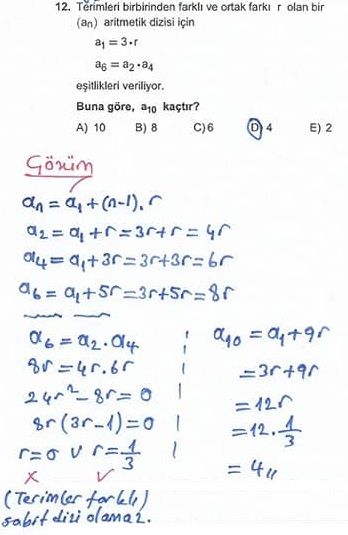 12. Terimleri birbirinden farklı ve ortak farkı r olan bir
(aₙ) aritmetik dizisi için
a₁ = 3·r
a₆ = a₂·a₄
eşitlikleri veriliyor.
Buna göre, a₁₀ kaçtır?
A) 10 B) 8 C) 6 D) 4 E) 2
Çözüm
aₙ = a₁ + (n-1). r
a₂ = a₁ + r = 3r + r = 4r
a₄ = a₁ + 3r = 3r + 3r = 6r
a₆ = a₁ + 5r = 3r + 5r = 8r
a₆ = a₂ . a₄
8r = 4r . 6r
24r² - 8r = 0
8r (3r - 1) = 0
r = 0 ∨ r = 1/3
x ✓
(Terimler farklı)
sabit dizi olamaz.
a₁₀ = a₁ + 9r
= 3r + 9r
= 12r
= 12 . 1/3
= 4 //